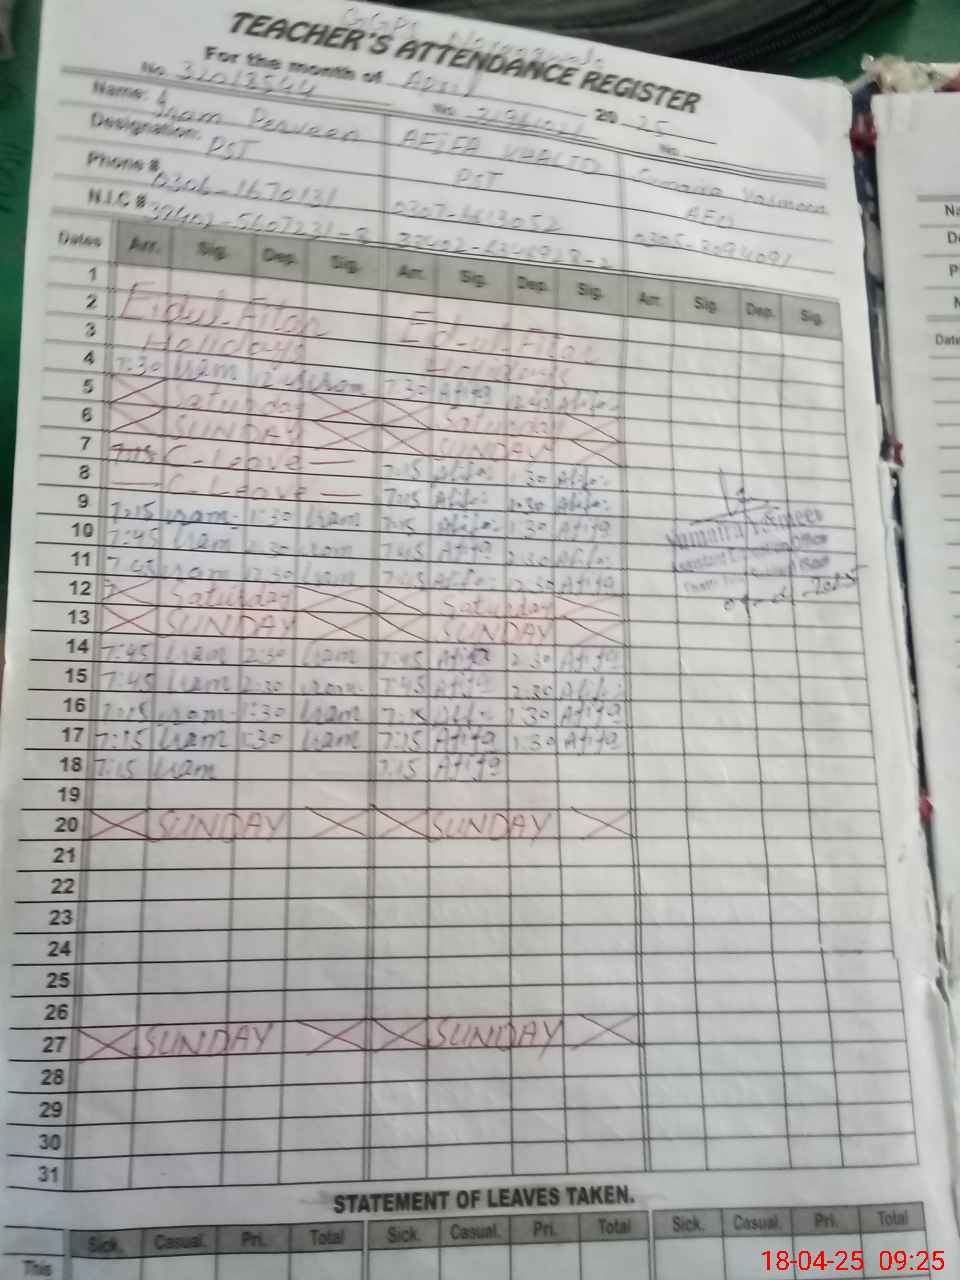 TEACHER'S ATTENDANCE REGISTER
For the month of April 2025
No. 32013544 No. No.
Name: Iram Perveen AFIFA KHALID Sumaira Yasmeen
Designation: PST PST AEO
Phone # 0306-1670131
N.I.C #
Dates Arr. Sig. Dep. Sig. Arr. Sig. Dep. Sig. Arr. Sig. Dep. Sig.
1
2 Eidul-Fitar Ed-ul-Fitar
3 Holidays Holidays
4 7:30 Iram Iram 7:30 Afifa 12:45 Afifa
5 Saturday Saturday
6 SUNDAY SUNDAY
7 7:15 C-Leave — 7:15 Afifa 1:30 Afifa
8 — C-Leave — 7:15 Afifa 1:30 Afifa
9 7:15 Iram 1:30 Iram 7:15 Afifa 1:30 Afifa
10 7:45 Iram 2:30 Iram 7:45 Afifa 2:30 Afifa
11 7:45 Iram 12:30 Iram 7:45 Afifa 12:30 Afifa
12 Saturday Saturday
13 SUNDAY SUNDAY
14 7:45 Iram 2:30 Iram 7:45 Afifa 2:30 Afifa
15 7:45 Iram 2:30 Iram 7:45 Afifa 2:30 Afifa
16 7:15 Iram 1:30 Iram 7:15 Afifa 1:30 Afifa
17 7:15 Iram 1:30 Iram 7:15 Afifa 1:30 Afifa
18 7:15 Iram 7:15 Afifa
19
20 SUNDAY SUNDAY
21
22
23
24
25
26
27 SUNDAY SUNDAY
28
29
30
31
Sumaira Yasmeen
Assistant Education Officer
STATEMENT OF LEAVES TAKEN.
Sick. Casual. Pri. Total Sick. Casual. Pri. Total Sick. Casual. Pri. Total
This
18-04-25 09:25